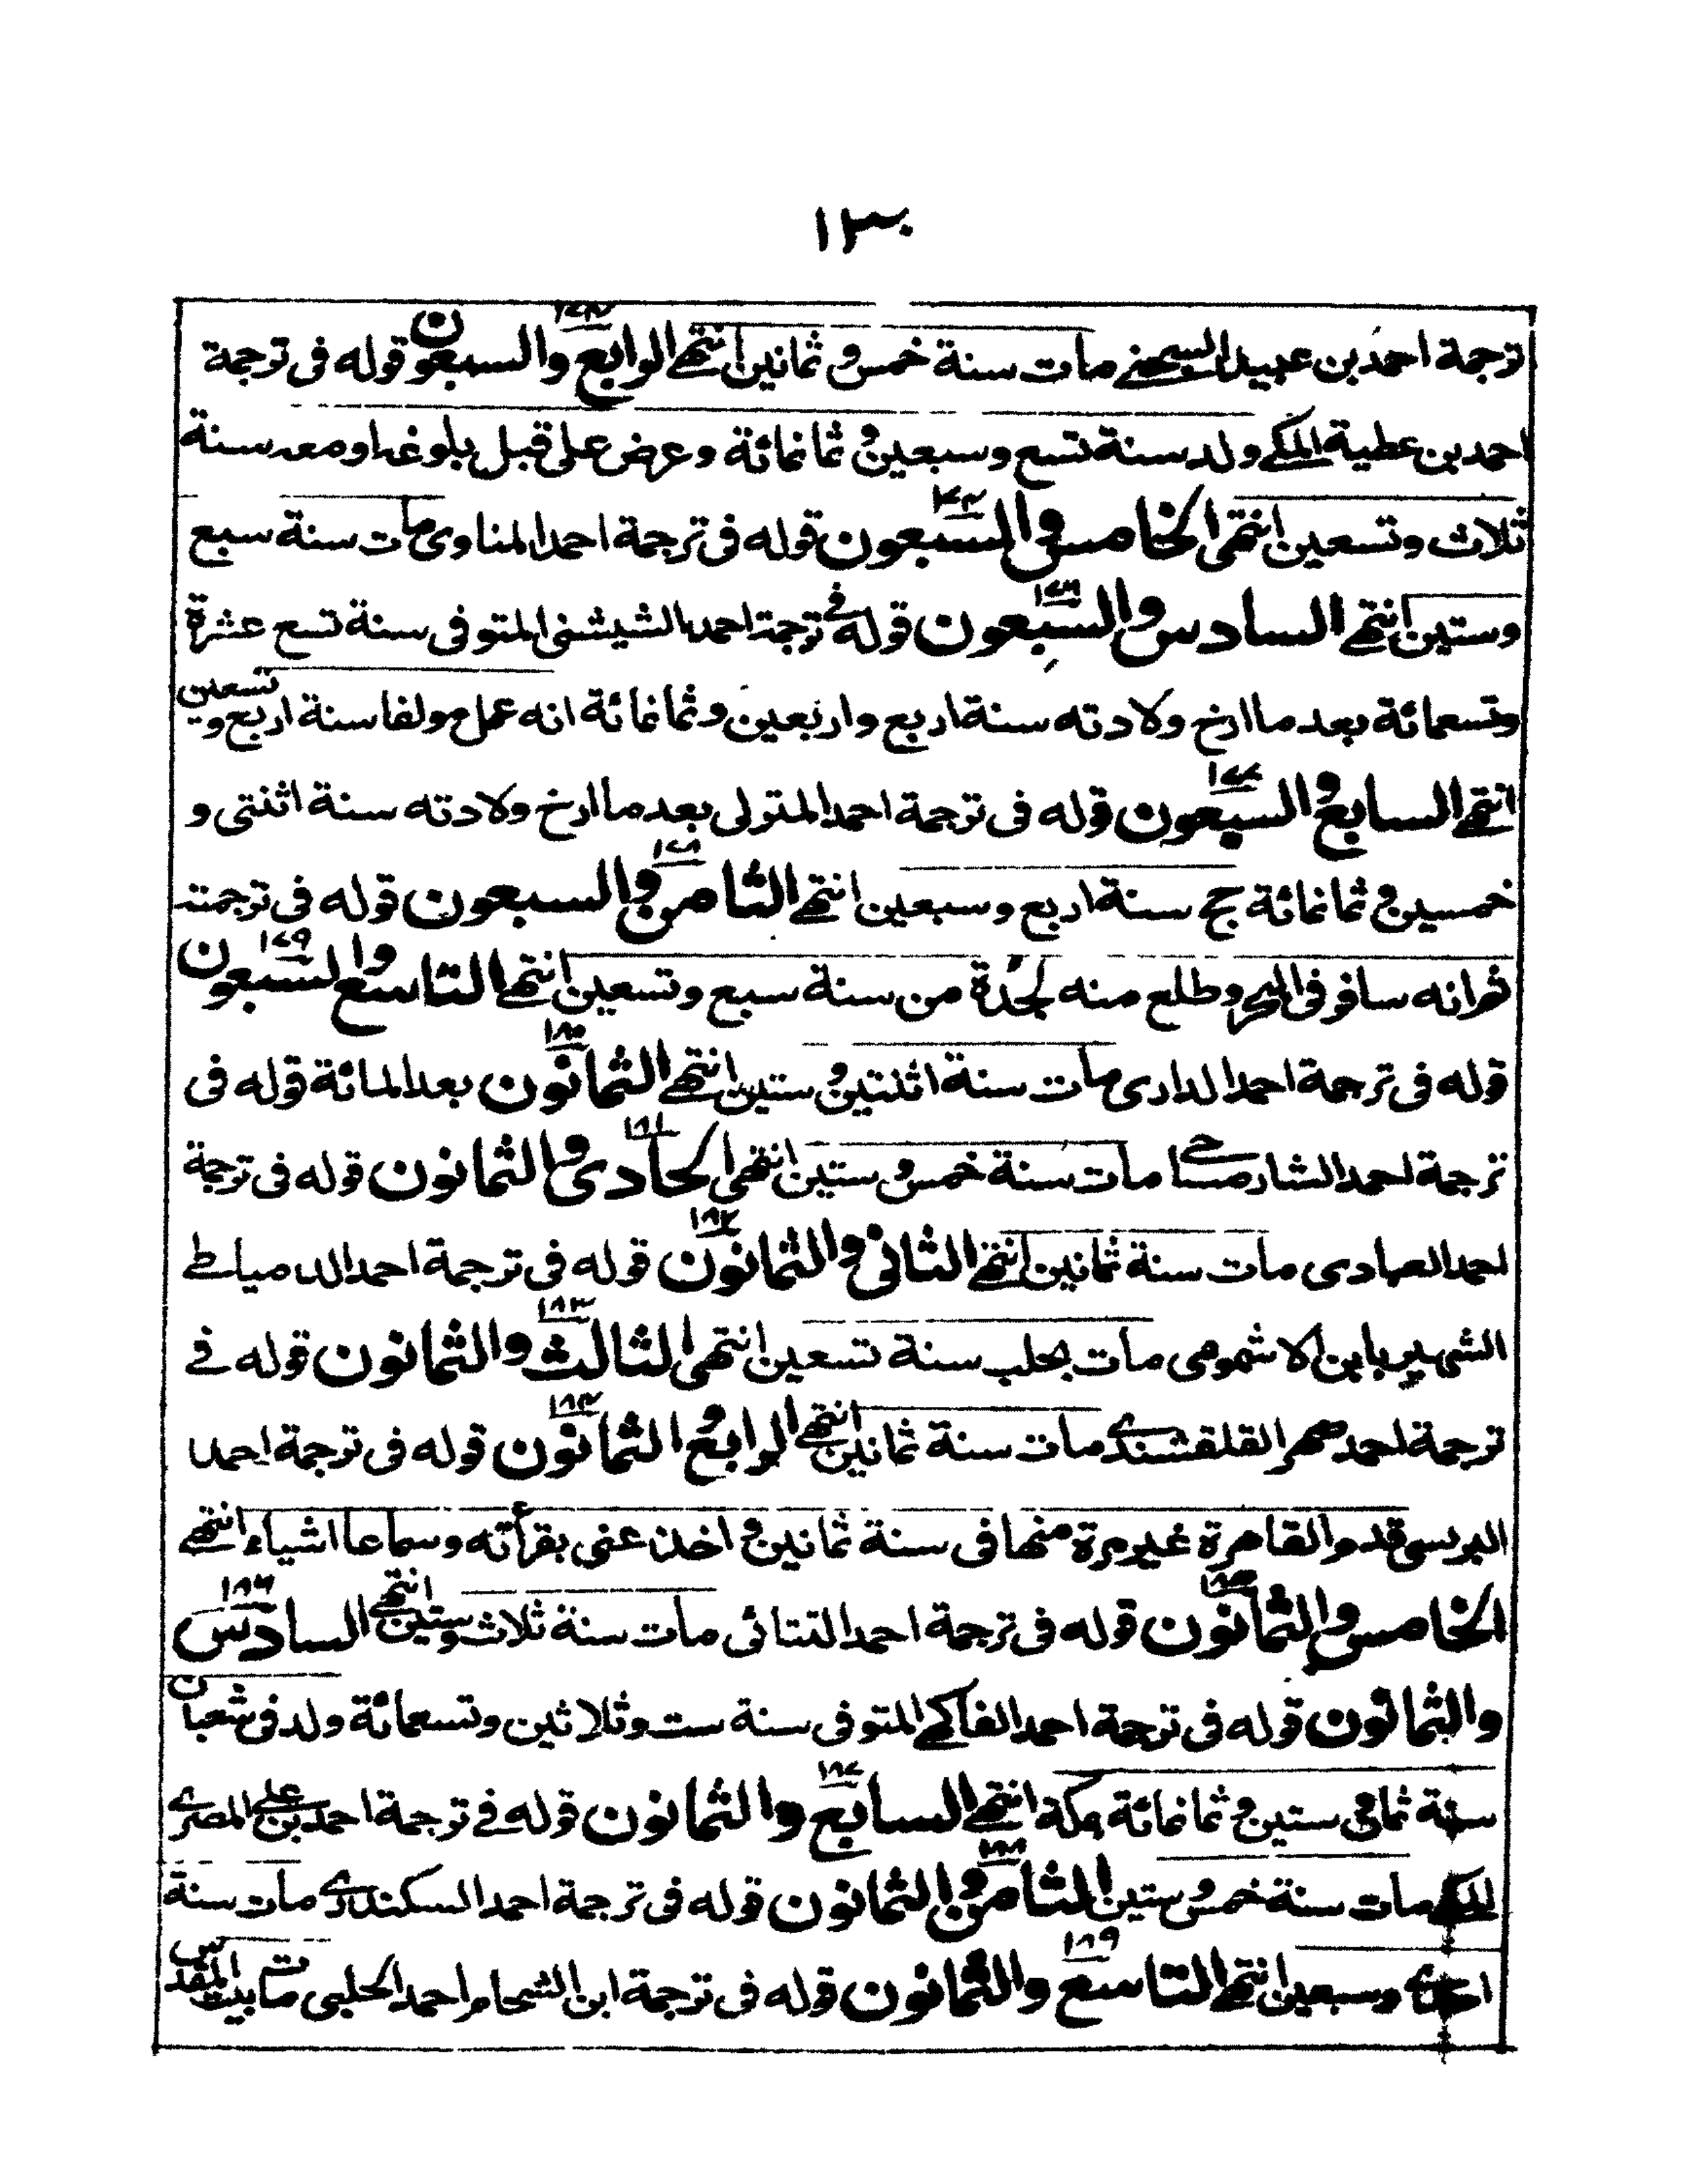 ١٣٠
ترجمة احمد بن عبيد السجيني مات سنة خمس و ثمانين انتهى الرابع والسبعون قوله فى ترجمة
احمد بن عطية المكي ولد سنة تسع وسبعين و ثمانمائة وعرض على قبل بلوغه او معه سنة
ثلاث وتسعين انتهى الخامس والسبعون قوله فى ترجمة احمد المناوى مات سنة سبع
وستين انتهى السادس والسبعون ١٧٦ قوله فى ترجمة احمد الشيشنى المتوفى سنة تسع عشرة
وتسعمائة بعد ما ارخ ولادته سنة اربع واربعين وثمانمائة انه عمل مولفا سنة اربع و تسعين
انتهى السابع و السبعون ١٧٧ قوله فى ترجمة احمد المتولى بعد ما ارخ ولادته سنة اثنتى و
خمسين و ثمانمائة حج سنة اربع وسبعين انتهى الثامن والسبعون ١٧٨ قوله فى ترجمته
ثم انه سافر فى البحر وطلع منه لجدة من سنة سبع وتسعين انتهى التاسع والسبعون ١٧٩
قوله فى ترجمة احمد الدارى مات سنة اثنتين و ستين انتهى الثمانون ١٨٠ بعد المائة قوله فى
ترجمة احمد الشارمساحي مات سنة خمس و ستين انتهى الحادى والثمانون ١٨١ قوله فى ترجمة
احمد العبادى مات سنة ثمانين انتهى الثانى والثمانون ١٨٢ قوله فى ترجمة احمد الدمياطي
الشهير بابن الاشمومى مات بحلب سنة تسعين انتهى الثالث والثمانون ١٨٣ قوله فى
ترجمة احمد القلقشندي مات سنة ثمانين انتهى الرابع و الثمانون ١٨٤ قوله فى ترجمة احمد
البرنسى قدم القاهرة غير مرة منها فى سنة ثمانين و اخذ عنى بقرأته وسماعا اشياء انتهى
الخامس والثمانون ١٨٥ قوله فى ترجمة احمد التتائى مات سنة ثلاث وستين انتهى السادس ١٨٦
والثمانون قوله فى ترجمة احمد الفاكهي المتوفى سنة ست وثلاثين وتسعمائة ولد فى شعبان
سنة ثمانى ستين و ثمانمائة بمكة انتهى السابع والثمانون ١٨٧ قوله فى ترجمة احمد بن على المصري
المكي مات سنة خمس و ستين الثامن و الثمانون ١٨٨ قوله فى ترجمة احمد السكندري مات سنة
احدى وسبعين انتهى التاسع والثمانون ١٨٩ قوله فى ترجمة ابن الشحام احمد الحلبى مات ببيت المقدس